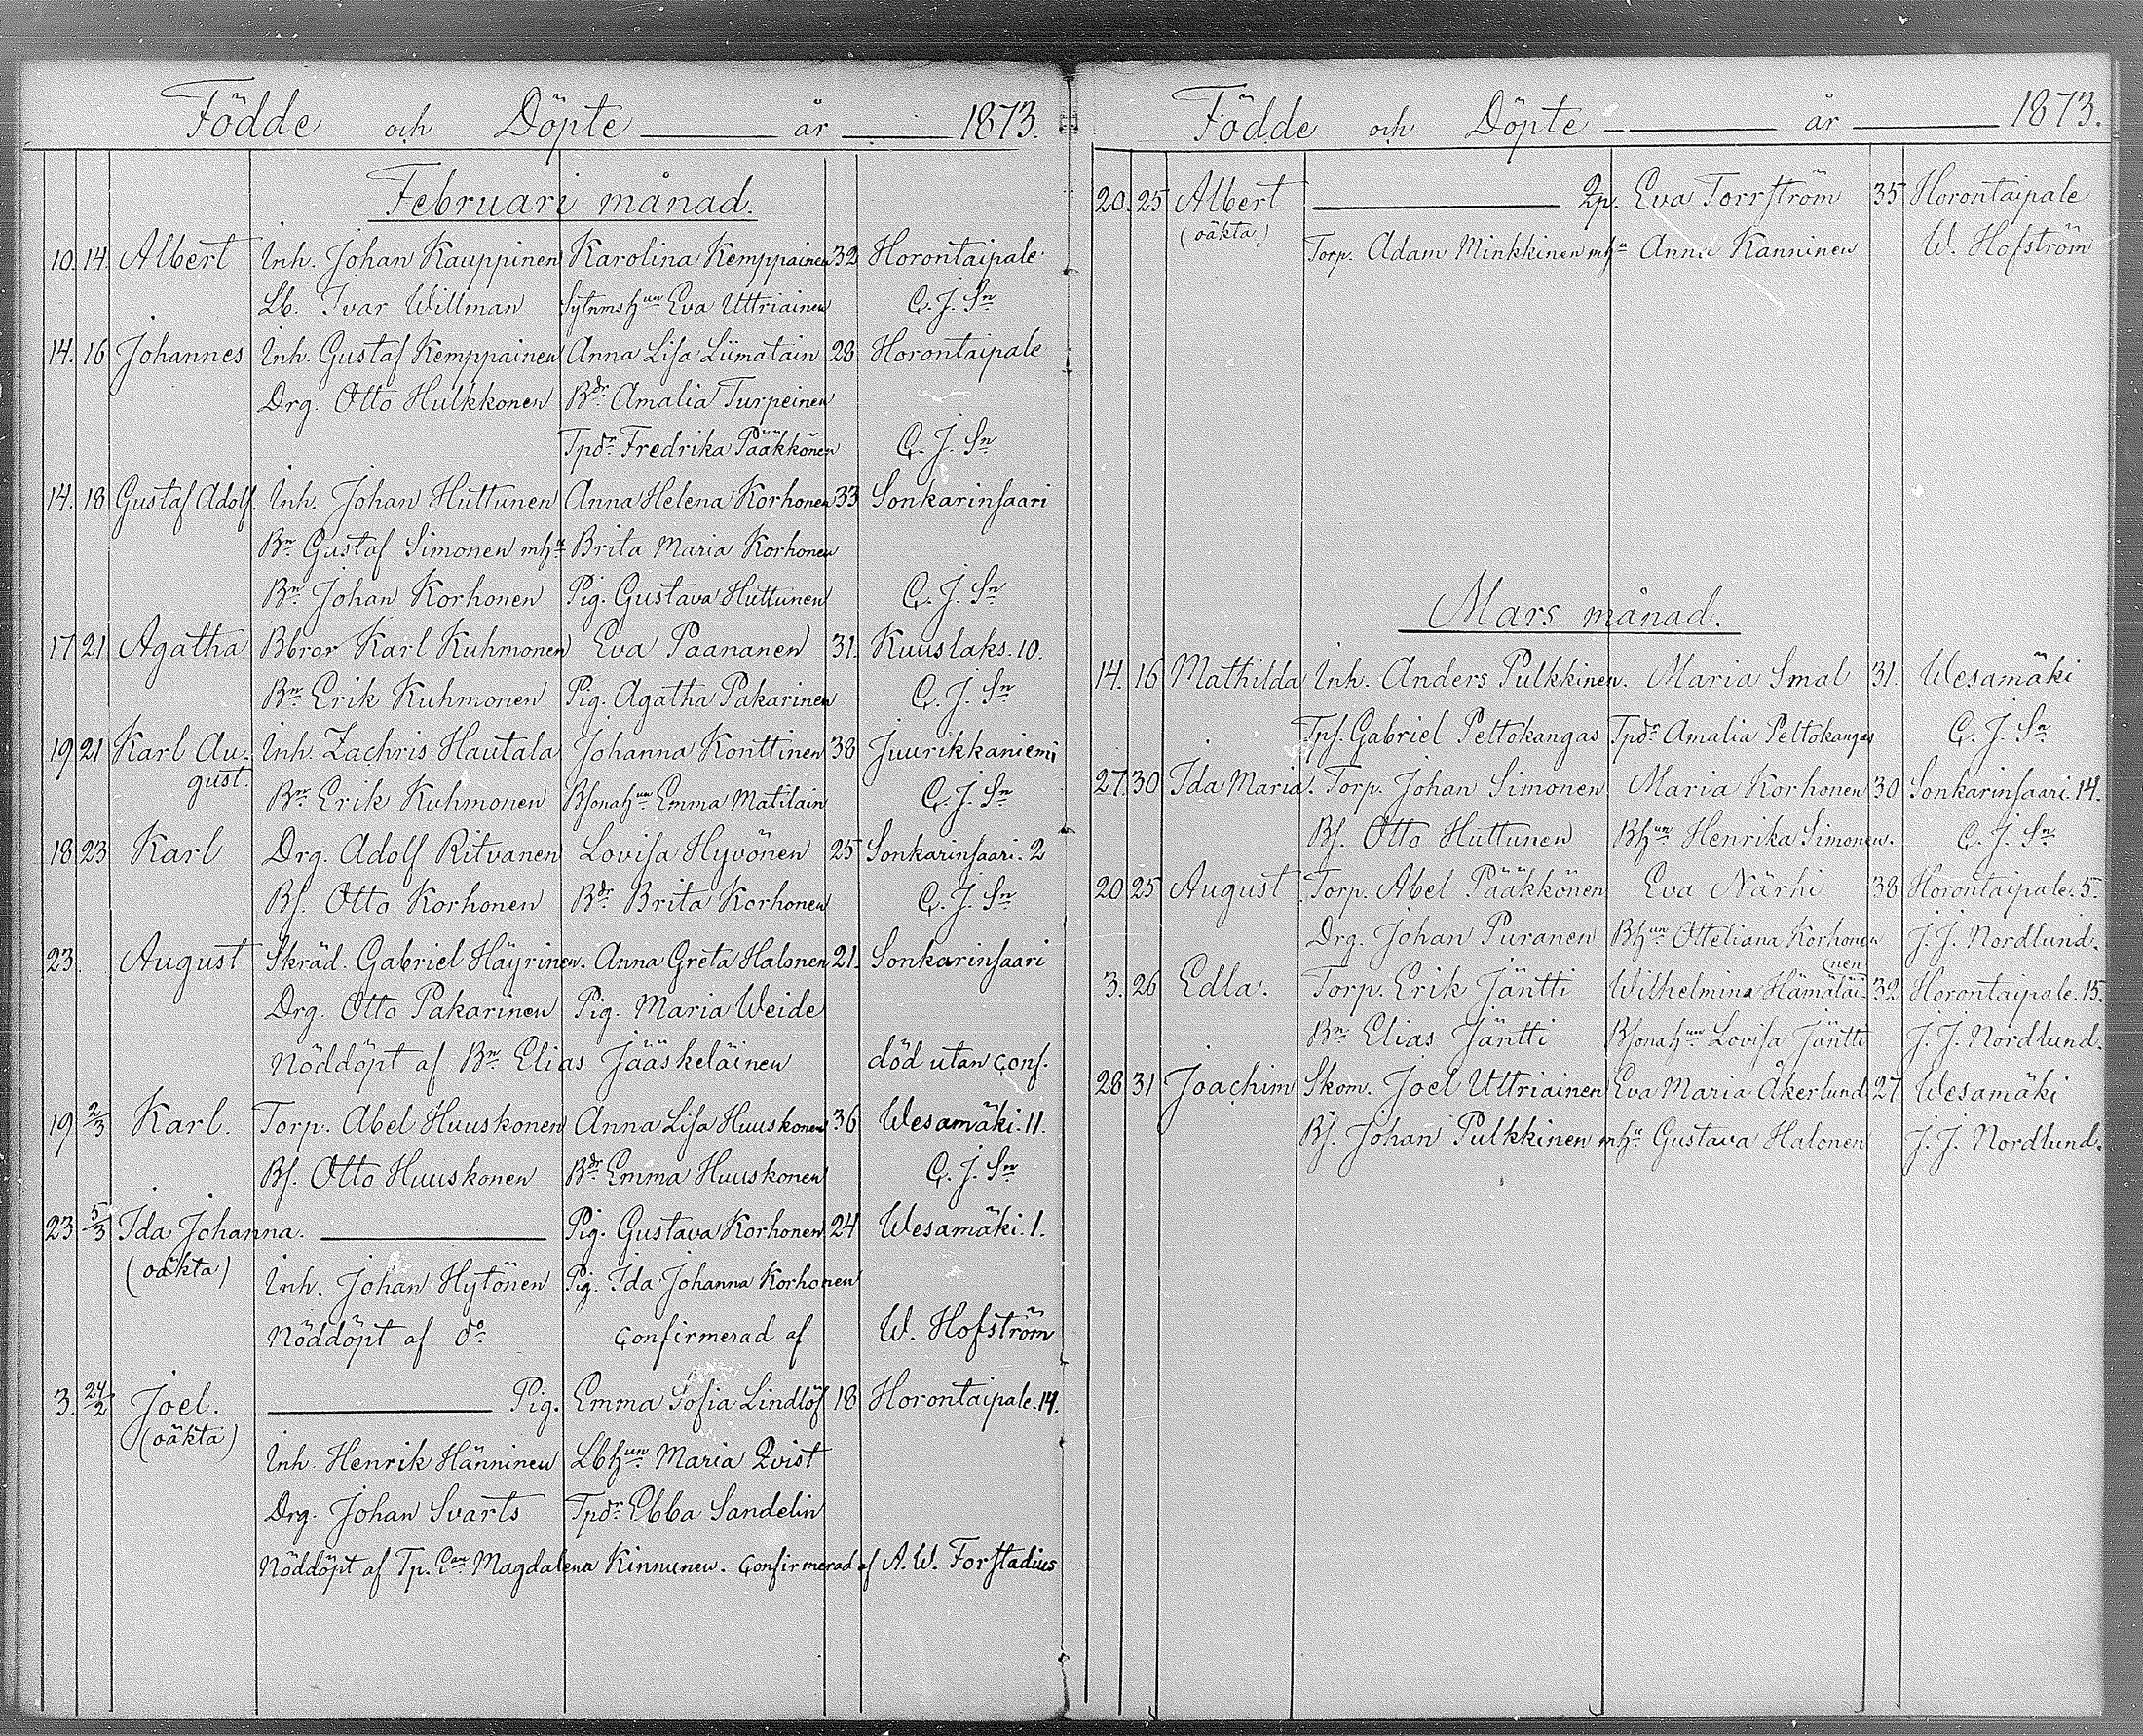 Födde och Döpte år 1873.
Februari månad.
10. 14. Albert Inh. Johan Kauppinen Karolina Kemppainen 32 Horontaipale
Lb. Ivar Willman Sytnmshun Eva Uttriainen C. J. Sn
14. 16 Johannes Inh. Gustaf Kemppainen Anna Lisa Liimatain 28 Horontaipale
Drg. Otto Hulkkonen Bdr Amalia Turpeinen
Tpdr Fredrika Pääkkönen C. J. Sn
14. 18 Gustaf Adolf. Inh. Johan Huttunen Anna Helena Korhonen 33 Sonkarinsaari
Bn Gustaf Simonen mha Brita Maria Korhonen
Bn Johan Korhonen Pig. Gustava Huttunen C. J. Sn
17 21 Agatha Bbror Karl Kuhmonen Eva Paananen 31. Kuuslaks. 10.
Bn Erik Kuhmonen Pig. Agatha Pakarinen C. J. Sn
19 21 Karl Au- Inh. Zachris Hautala Johanna Konttinen 38 Juurikkaniemi
gust. Bn Erik Kuhmonen Bsonahun Emma Matilain C. J. Sn
18 23 Karl Drg. Adolf Ritvanen Lovisa Hyvönen 25 Sonkarinsaari. 2
Bs. Otto Korhonen Bdr Brita Korhonen C. J. Sn
23. August Skräd. Gabriel Häyrinen. Anna Greta Halonen 21. Sonkarinsaari
Drg. Otto Pakarinen Pig. Maria Weide
Nöddöpt af Bn Elias Jääskeläinen död utan conf.
19 2/3 Karl. Torp. Abel Huuskonen Anna Lisa Huuskonen 36 Wesamäki. 11.
Bs. Otto Huuskonen Bdr Emma Huuskonen C. J. Sn
23 5/3 Ida Johanna. Pig. Gustava Korhonen 24 Wesamäki. 1.
(oäkta) Inh. Johan Hytönen Pig. Ida Johanna Korhonen
Nöddöpt af do Confirmerad af W. Hofström
3. 24/2 Joel. Pig. Emma Sofia Lindlöf 18 Horontaipale. 14.
(oäkta)
Inh. Henrik Hänninen Lbhun Maria Qvist
Drg. Johan Svarts Tpdr Ebba Sandelin
Nöddöpt af Tp. Magdalena Kinnunen. Confirmerad af A. W. Forstadius
Födde och Döpte år 1873.
20. 25 Albert Qp. Eva Torrström 35 Horontaipale
(oäkta) Torp. Adam Minkkinen mha Anna Kanninen W. Hofström
Mars månad.
14. 16 Mathilda Inh. Anders Pulkkinen. Maria Smal 31. Wesamäki
Tps. Gabriel Peltokangas Tpdr Amalia Peltokangas C. J. Sn
27. 30 Ida Maria. Torp. Johan Simonen Maria Korhonen 30 Sonkarinsaari. 14.
Bs. Otto Huttunen Bhun Henrika Simonen. C. J. Sn
20 25 August Torp. Abel Pääkkönen Eva Närhi 38 Horontaipale. 5.
Drg. Johan Puranen Bhun Otteliana Korhonen J. J. Nordlund.
3. 26 Edla. Torp. Erik Jäntti Wilhelmina Hämäläi- (nen 32 Horontaipale. 15.
Bn Elias Jäntti Bsonahun Lovisa Jäntti J. J. Nordlund.
28 31 Joachim Skom. Joel Uttriainen Eva Maria Åkerlund 27 Wesamäki
Bs. Johan Pulkkinen mha Gustava Halonen J. J. Nordlund.